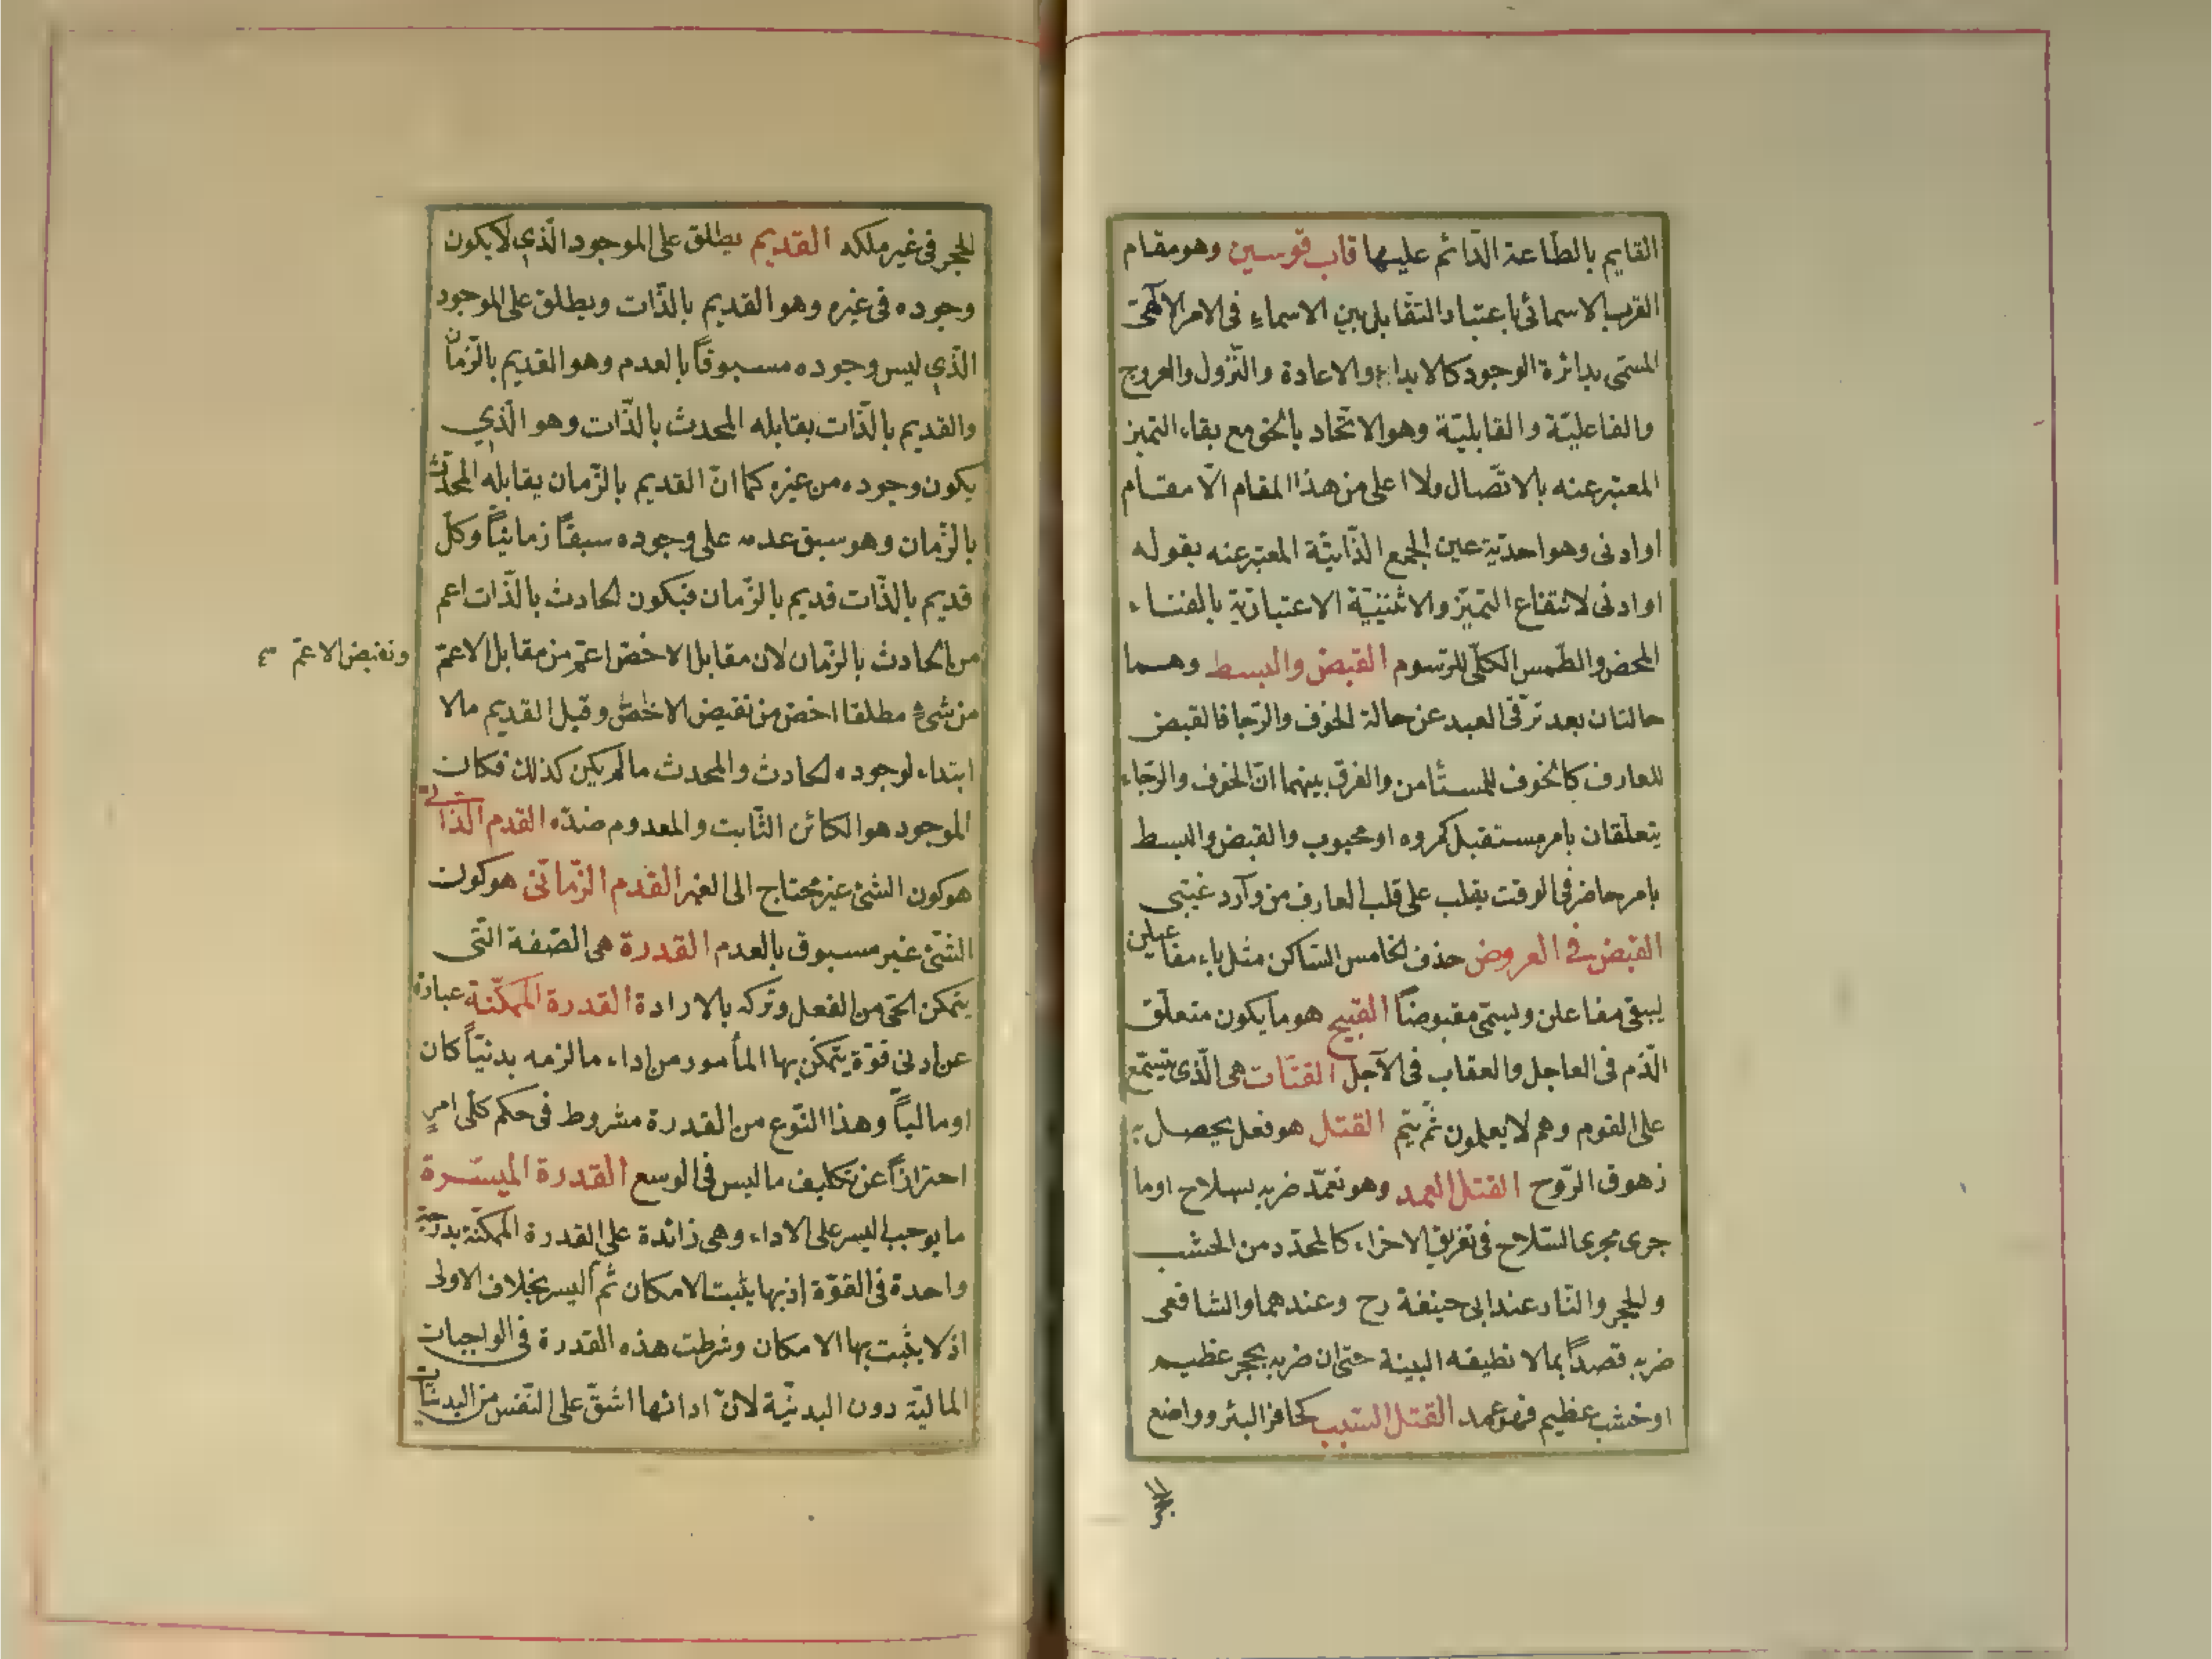 القايم بالطّاعة الدّائم عليها قاب قوسين وهو مقام
القرب الاسمائى باعتبار التّقابل بين الاسماء فى الامر الالٓهىّ
المسمّى بدائرة الوجود كالابداء والاعادة والنّزول والعروج
والفاعليّة والقابليّة وهو الاتّحاد بالحق مع بقاء التميز
المعتبر عنه بالاتّصال ولا اعلى من هذا المقام الّا مقام
اوادنى وهو احديّة عين الجمع الذّاتيّة المعتبر عنه بقوله
اوادنى لانتفاع التميّز والاثنينيّة الاعتباريّة بالفناء
المحض والطّمس الكلّى للرّسوم القبض والبسط وهما
حالتان بعد ترقّى العبد عن حالة الخوف والرّجا فالقبض
للعارف كالخوف للمستأمن والفرق بينهما انّ الخوف والرّجاء
يتعلّقان بامر مستقبل مكروه او محبوب والقبض والبسط
بامر حاضر فى الوقت يغلب على قلب العارف من وارد غيبى
القبض فى العروض حذف الخامس السّاكن مثل ياء مفاعيلن
ليبقى مفاعلن ويسمّى مقبوضاً القبيح هو ما يكون متعلّق
الذّم فى العاجل والعقاب فى الآجل القتّات هى الّذى يتسمّع
على القوم وهم لا يعلمون ثمّ ينمّ القتل هو فعل يحصل به
زهوق الرّوح القتل العمد وهو تعمّد ضربه بسلاح او ما
جرى مجرى السّلاح فى تفريق الاجزاء كالمحدّد من الخشب
والحجر والنّار عند ابى حنيفة رح وعندهما والشافعى
ضربه قصداً بما لا تطيقه البينة حتى ان ضربه بحجر عظيم
او خشب عظيم فهو عمد القتل السّبب كحافر البئر وواضع
الحجر
الحجر فى غير ملكه القديم يطلق على الموجود الّذى لا يكون
وجوده فى غيره وهو القديم بالذّات ويطلق على الموجود
الّذى ليس وجوده مسبوقاً بالعدم وهو القديم بالزّمان
والقديم بالذّات بقابله المحدث بالذّات وهو الّذى
يكون وجوده من غيره كما انّ القديم بالزّمان يقابله المحدّث
بالزّمان وهو سبق عدمه على وجوده سبقاً زمانيّاً وكلّ
قديم بالذّات قديم بالزّمان فيكون الحادث بالذّات اعم
من الحادث بالزّمان لان مقابل الاخصّ اعمّ من مقابل الاعمّ
ونقيض الاعمّ
من شئ مطلقا اخصّ من نقيض الاخصّ وقيل القديم مالا
ابتداء لوجوده الحادث والمحدث مالم يكن كذلك فكان
الموجود هو الكائن الثّابت والمعدوم ضدّه القدم الذّاتى
هو كون الشئ غير محتاج الى الغير القدم الزّمانّى هو كون
الشّئ غير مسبوق بالعدم القدرة هى الصّفة الّتى
يتمكن الحىّ من الفعل وتركه بالارادة القدرة الممكّنة عبارة
عن ادنى قوّة يتمكّن بها المأمور من اداء ما لزمه بدنيّاً كان
او ماليّاً وهذا النّوع من القدرة مشروط فى حكم كلّى امرٍ
احترازاً عن تكليف ما ليس فى الوسع القدرة الميسّرة
ما يوجب اليسر على الاداء وهى زائدة على القدرة الممكّنة بدرجة
واحدة فى القوّة اذ بها يثبت الامكان ثمّ اليسر بخلاف الاولى
اذ لا يثبت بها الامكان وشرطت هذه القدرة فى الواجبات
الماليّة دون البدنيّة لانّ ادائها اشقّ على النّفس من البدنيّات